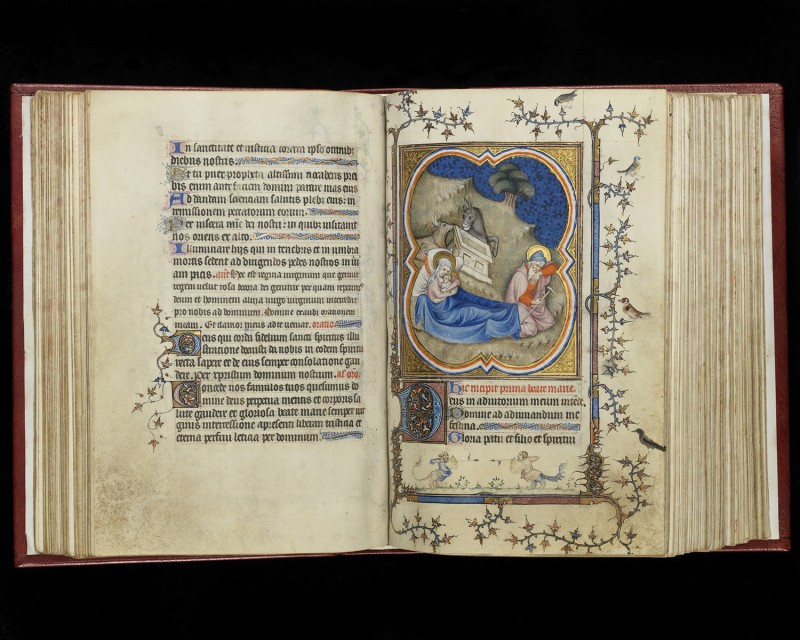 In sanctitate et iusticia coram ipso omnibus
diebus nostris.
Et tu puer propheta altissimi vocaberis prei
bis enim ante faciem domini parare vias eius
Ad dandam scienciam salutis plebi eius: in
remissionem peccatorum eorum.
Per viscera mie dei nostri: in quibz visitavit
nos oriens ex alto.
Illuminare hijs qui in tenebris et in umbra
mortis sedent ad dirigendos pedes nostros in vi
am pacis. Hec est regina virginum que genuit
regem velut rosa decora dei genitrix per quam reperim
deum et hominem alma virgo virginum intercede
pro nobis ad dominum. Domine exaudi orationem
meam. Et clamor meus ad te veniat. oratio
Deus qui corda fidelium sancti spiritus illu
stratione docuisti da nobis in eodem spiritu
recta sapere et de eius semper consolatione gau
dere. per xpristum dominum nostrum. al' oro
Concede nos famulos tuos quesumus do
mine deus perpetua mentis et corporis sa
lute gaudere et gloriosa beate marie semper vir
ginis intercessione a presenti liberari tristicia et
eterna perfrui leticia per dominum
Hic incipit prima beate marie.
Deus in adiutorium meum intende.
Domine ad adiuvandum me
festina.
Gloria patri et filio et spiritui